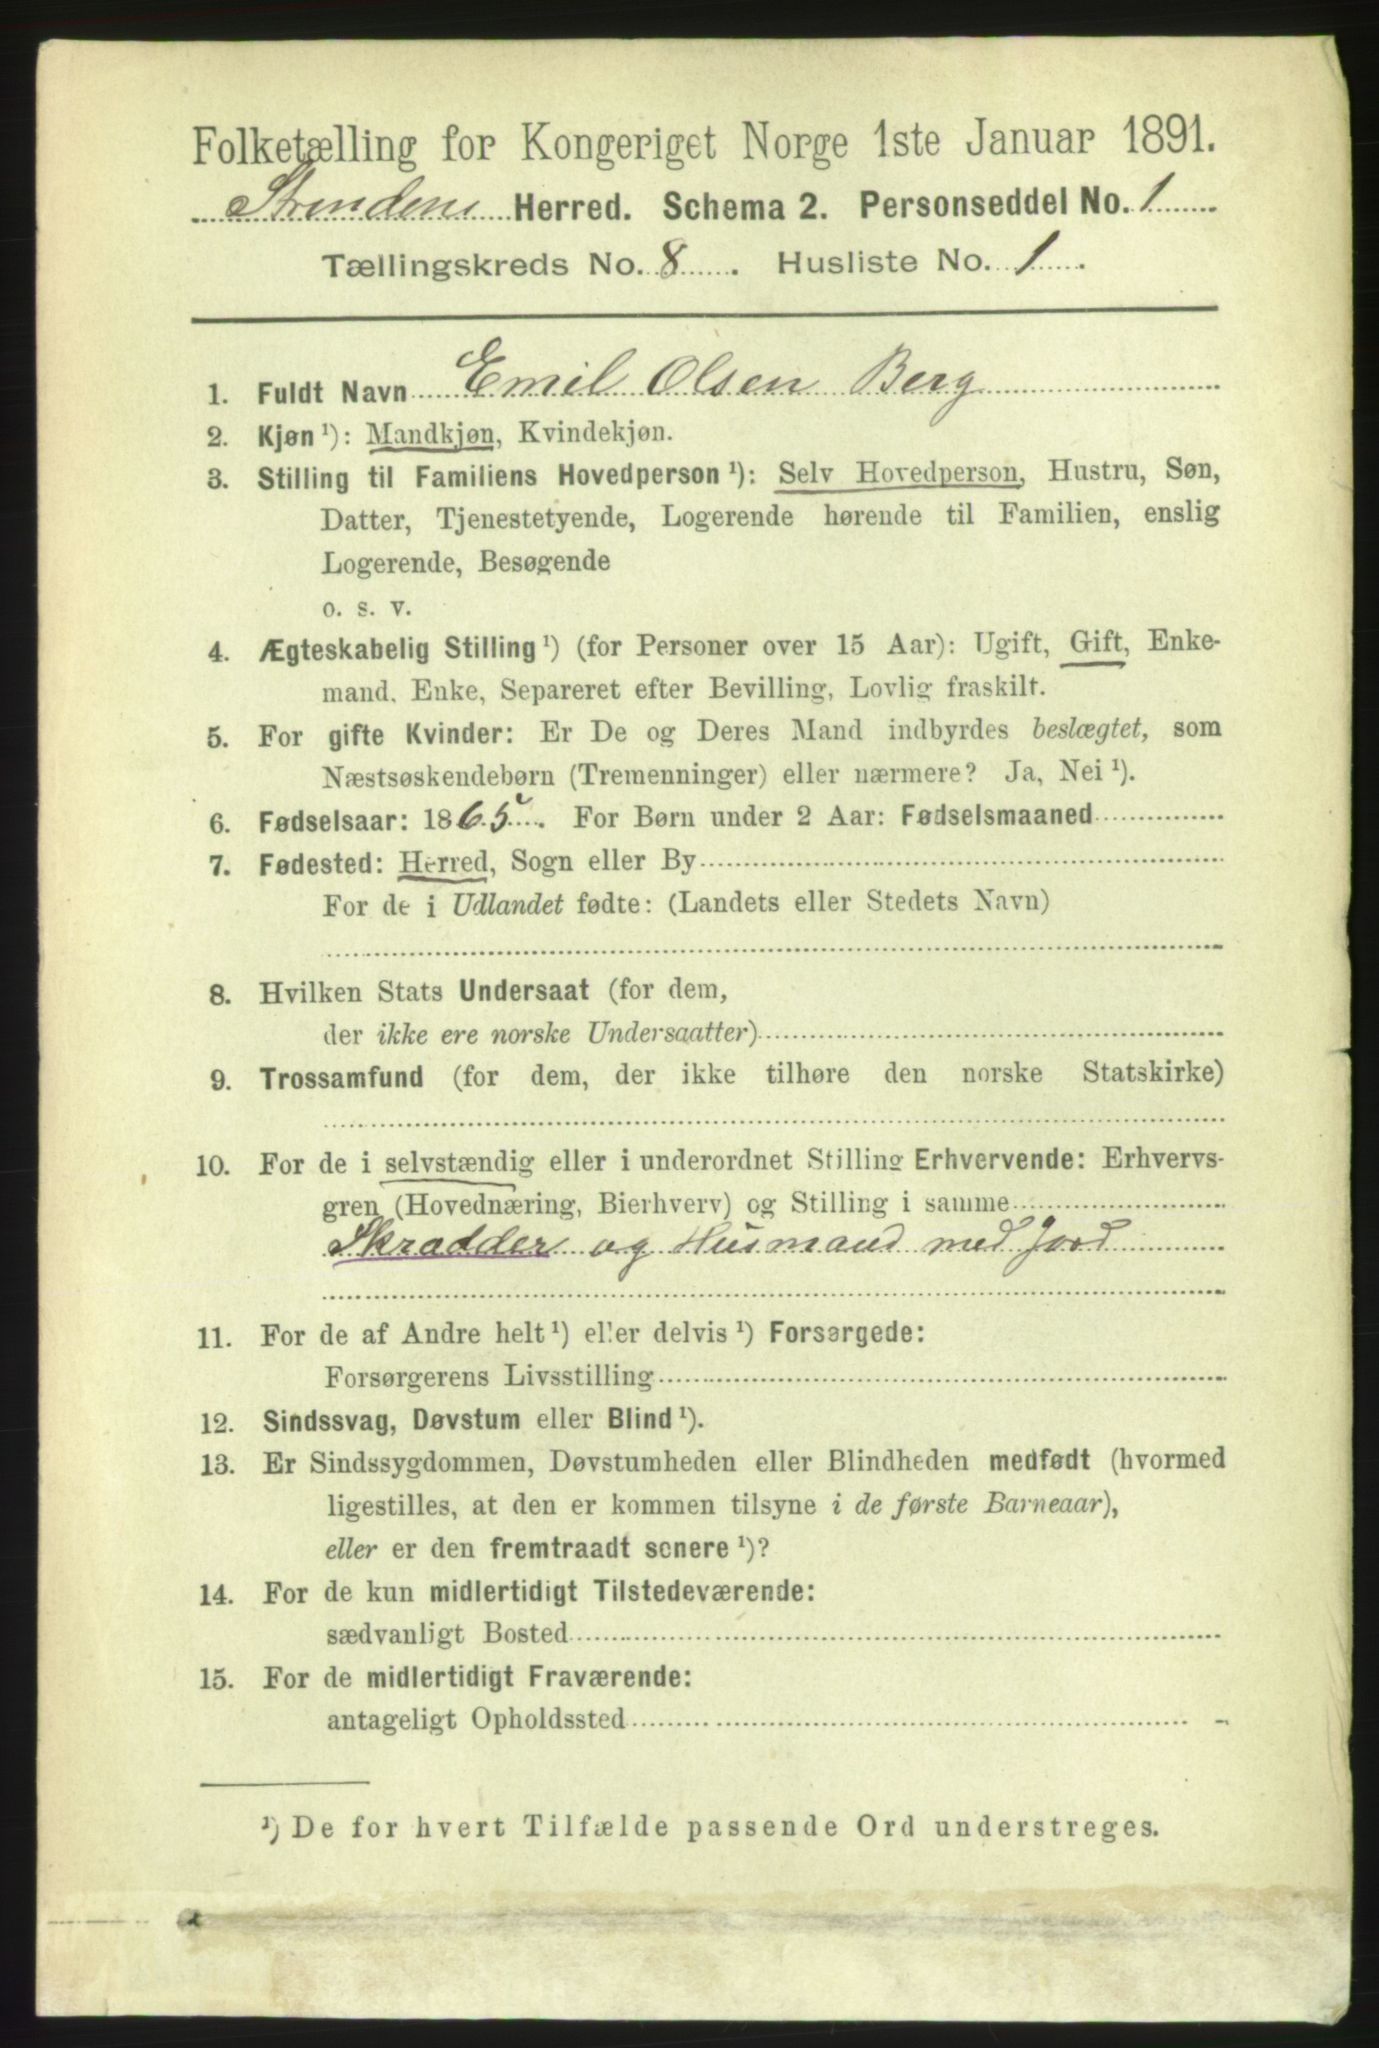 Folketælling for Kongeriget Norge 1ste Januar 1891.
Strindens Herred. Schema 2. Personseddel No. 1
Tællingskreds No. 8. Husliste No. 1.
1. Fuldt Navn Emil Olsen Berg
2. Kjøn ¹): Mandkjøn, Kvindekjøn.
3. Stilling til Familiens Hovedperson ¹): Selv Hovedperson, Hustru, Søn,
Datter, Tjenestetyende, Logerende hørende til Familien, enslig
Logerende, Besøgende
o. s. v.
4. Ægteskabelig Stilling ¹) (for Personer over 15 Aar): Ugift, Gift, Enke-
mand, Enke, Separeret efter Bevilling, Lovlig fraskilt.
5. For gifte Kvinder: Er De og Deres Mand indbyrdes beslægtet, som
Næstsøskendebørn (Tremenninger) eller nærmere? Ja, Nei ¹).
6. Fødselsaar: 1865. For Børn under 2 Aar: Fødselsmaaned
7. Fødested: Herred, Sogn eller By
For de i Udlandet fødte: (Landets eller Stedets Navn)
8. Hvilken Stats Undersaat (for dem,
der ikke ere norske Undersaatter)
9. Trossamfund (for dem, der ikke tilhøre den norske Statskirke)
10. For de i selvstændig eller i underordnet Stilling Erhvervende: Erhvervs-
gren (Hovednæring, Bierhverv) og Stilling i samme
Skrædder og Husmand med Jord
11. For de af Andre helt ¹) eller delvis ¹) Forsørgede:
Forsørgerens Livsstilling
12. Sindssvag, Døvstum eller Blind ¹).
13. Er Sindssygdommen, Døvstumheden eller Blindheden medfødt (hvormed
ligestilles, at den er kommen tilsyne i de første Barneaar),
eller er den fremtraadt senere ¹)?
14. For de kun midlertidigt Tilstedeværende:
sædvanligt Bosted
15. For de midlertidigt Fraværende:
antageligt Opholdssted
¹) De for hvert Tilfælde passende Ord understreges.